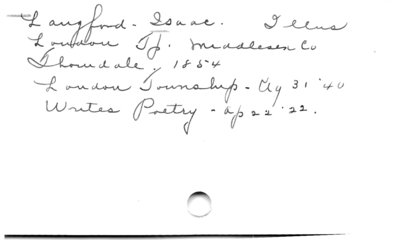 Langford - Isaac. Illus
London Tp. Middlesex Co
Thorndale, 1854
London Township - Ag 31 '40
Writes Poetry - Ap 22 '22.